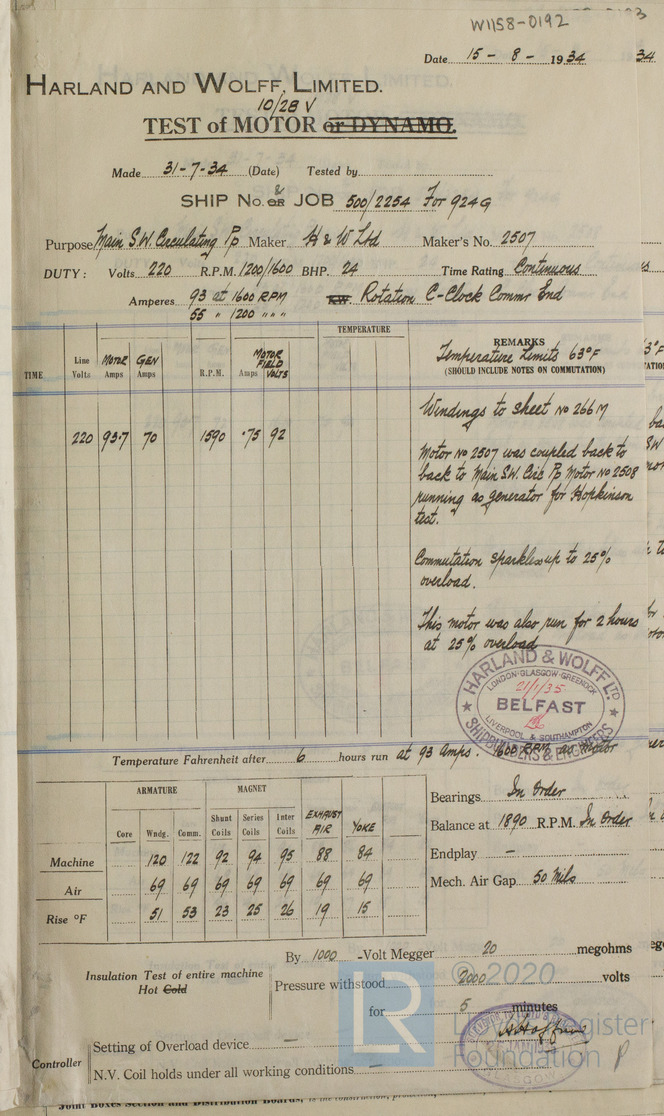 W1158-0192
Date 15 - 8 - 1934
HARLAND AND WOLFF, LIMITED.
10/28 V
TEST of MOTOR or DYNAMO.
Made 31-7-34 (Date) Tested by
SHIP No. & OR JOB 500/2254 For 924G
Purpose Main S.W. Circulating Pp Maker H & W Ltd Maker's No. 2507
DUTY: Volts 220 R.P.M. 1200/1600 BHP. 24 Time Rating Continuous
Amperes 93 at 1600 RPM KW. Rotation C-Clock Commr End
55 " 1200 " " "
TEMPERATURE
TIME Line Volts MOTOR Amps GEN Amps R.P.M. MOTOR FIELD Amps VOLTS REMARKS
Temperature Limits 63°F
(SHOULD INCLUDE NOTES ON COMMUTATION)
Windings to Sheet No 266M
220 93.7 70 1590 .75 92
Motor No 2507 was coupled back to
back to Main S.W. Circ Pp Motor No 2508
running as generator for Hopkinson
test.
Commutation sparkless up to 25%
overload.
This motor was also run for 2 hours
at 25% overload
HARLAND & WOLFF LTD
LONDON·GLASGOW·GREENOCK
21/1/35
BELFAST
LIVERPOOL & SOUTHAMPTON
SHIPBUILDERS & ENGINEERS
Temperature Fahrenheit after 6 hours run at 93 Amps. 1600 RPM as Motor
ARMATURE MAGNET
Core Wndg. Comm. Shunt Coils Series Coils Inter Coils EXHAUST AIR YOKE
Machine 120 122 92 94 95 88 84
Air 69 69 69 69 69 69 69
Rise °F 51 53 23 25 26 19 15
Bearings In Order
Balance at 1890 R.P.M. In Order
Endplay -
Mech. Air Gap 50 Mils
Insulation Test of entire machine
Hot Cold
By 1000 -Volt Megger 20 megohms
Pressure withstood 2000 volts
for 5 minutes
Controller
Setting of Overload device -
N.V. Coil holds under all working conditions -
LR
© 2020
Lloyd's Register
Foundation
GLASGOW
Joint Boxes Section and Distribution Boards,